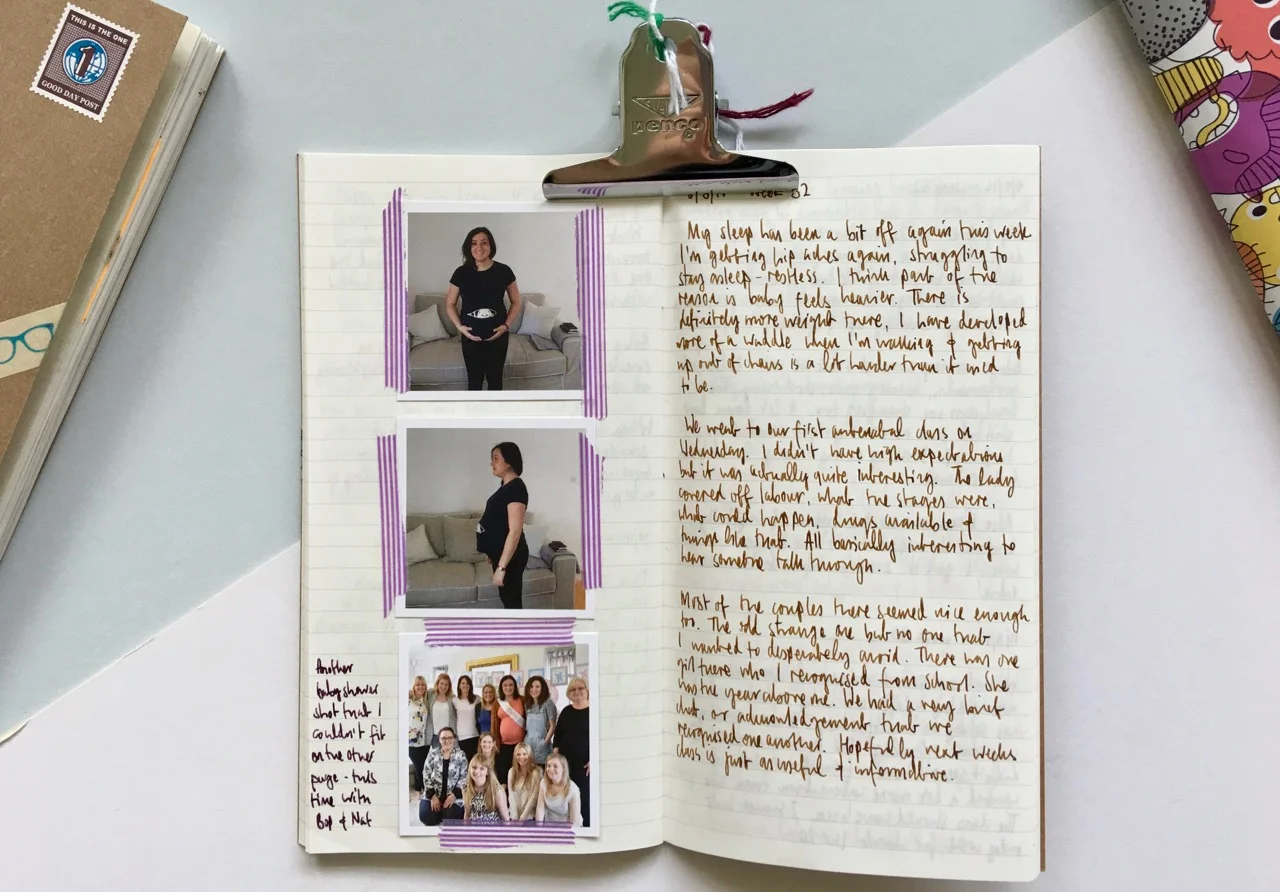 THIS IS THE ONE
1
GOOD DAY POST
penco
WEEK 32
My sleep has been a bit off again this week
I'm getting hip aches again, struggling to
stay asleep - restless. I think part of the
reason is baby feels heavier. There is
definitely more weight there, I have developed
more of a waddle when I'm walking & getting
up out of chairs is a lot harder than it used
to be.
We went to our first antenatal class on
Wednesday. I didn't have high expectations
but it was actually quite interesting. The lady
covered off labour, what the stages were,
what could happen, drugs available &
things like that. All basically interesting to
hear someone talk through.
Most of the couples there seemed nice enough
too. The odd strange one but no one that
I wanted to desperately avoid. There was one
girl there who I recognised from school. She
was the year above me. We had a very brief
chat, or acknowledgement that we
recognised one another. Hopefully next weeks
class is just as useful & informative.
Another
baby shower
shot that I
couldn't fit
on the other
page - this
time with
Bop & Nat